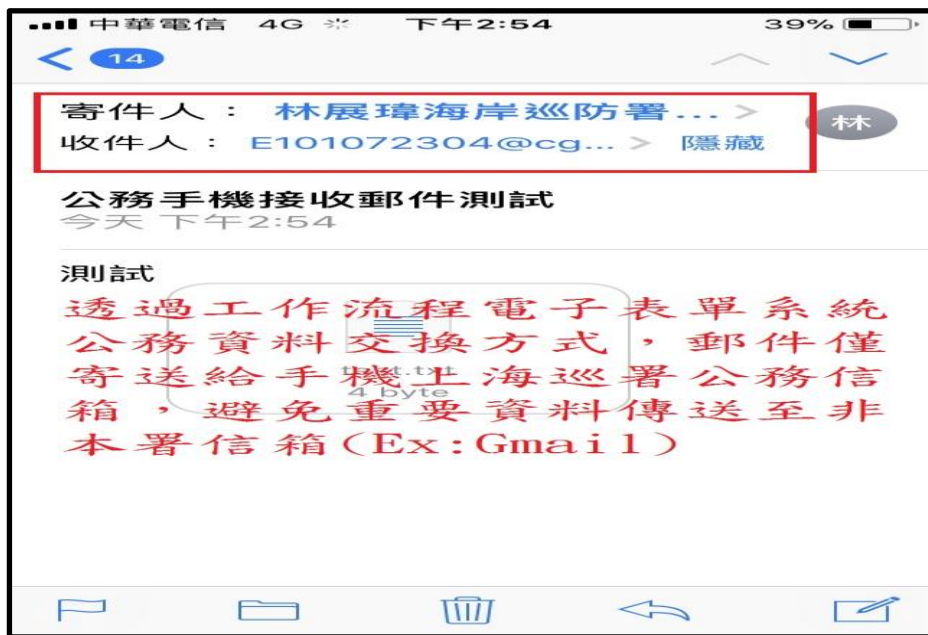 中華電信 4G 下午2:54 39%
14
寄件人： 林展瑋海岸巡防署... >
林
收件人： E101072304@cg... > 隱藏
公務手機接收郵件測試
今天 下午2:54
測試
透過工作流程電子表單系統
公務資料交換方式，郵件僅
寄送給手機上海巡署公務信
箱，避免重要資料傳送至非
本署信箱(Ex:Gmail)
4 byte